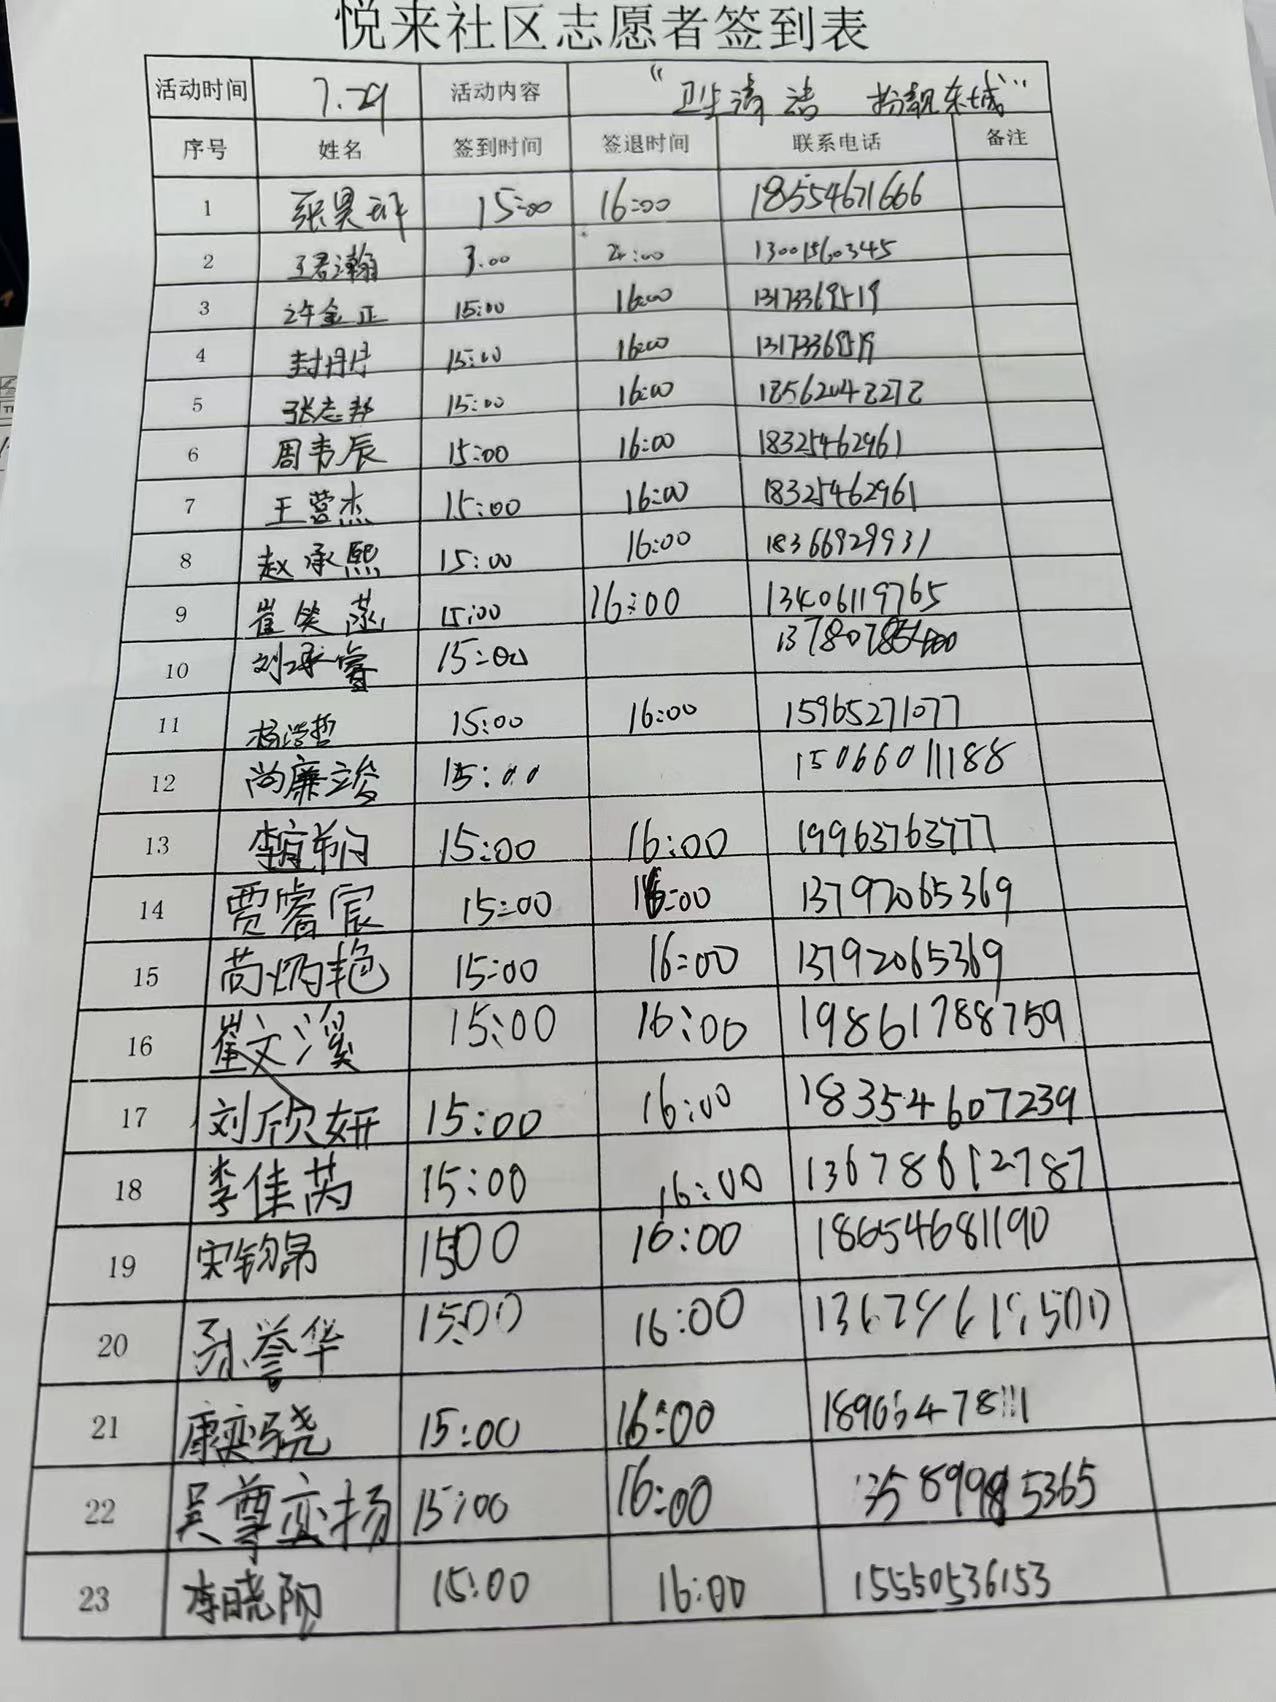 悦来社区志愿者签到表
活动时间 7.29 活动内容 “卫生清洁 扮靓东城”
序号 姓名 签到时间 签退时间 联系电话 备注
1 张昊 15:00 16:00 18554671666
2 王君瀚 3.00 4:00 13001560345
3 许金正 15:00 16:00 13173369519
4 封丹丹 15:00 16:00 13173369519
5 张志邦 15:00 16:00 18562048272
6 周韦辰 15:00 16:00 18325462961
7 王营杰 15:00 16:00 18325462961
8 赵承熙 15:00 16:00 18366929931
9 崔笑菡 15:00 16:00 13406119765
10 刘承睿 15:00
11 杨浩哲 15:00 16:00 15965271077
12 尚廉竣 15:00 15066011188
13 李 15:00 16:00 19963763777
14 贾睿宸 15:00 16:00 13792065369
15 苘炳艳 15:00 16:00 13792065369
16 崔文溪 15:00 16:00 19861788759
17 刘欣妍 15:00 16:00 18354607239
18 李佳芮 15:00 16:00 13678612787
19 宋钧昂 1500 16:00 18654681190
20 孙誉华 15:00 16:00
21 康奕骁 15:00 16:00
22 吴尊奕扬 15:00 16:00
23 李晓阳 15:00 16:00 15550536153